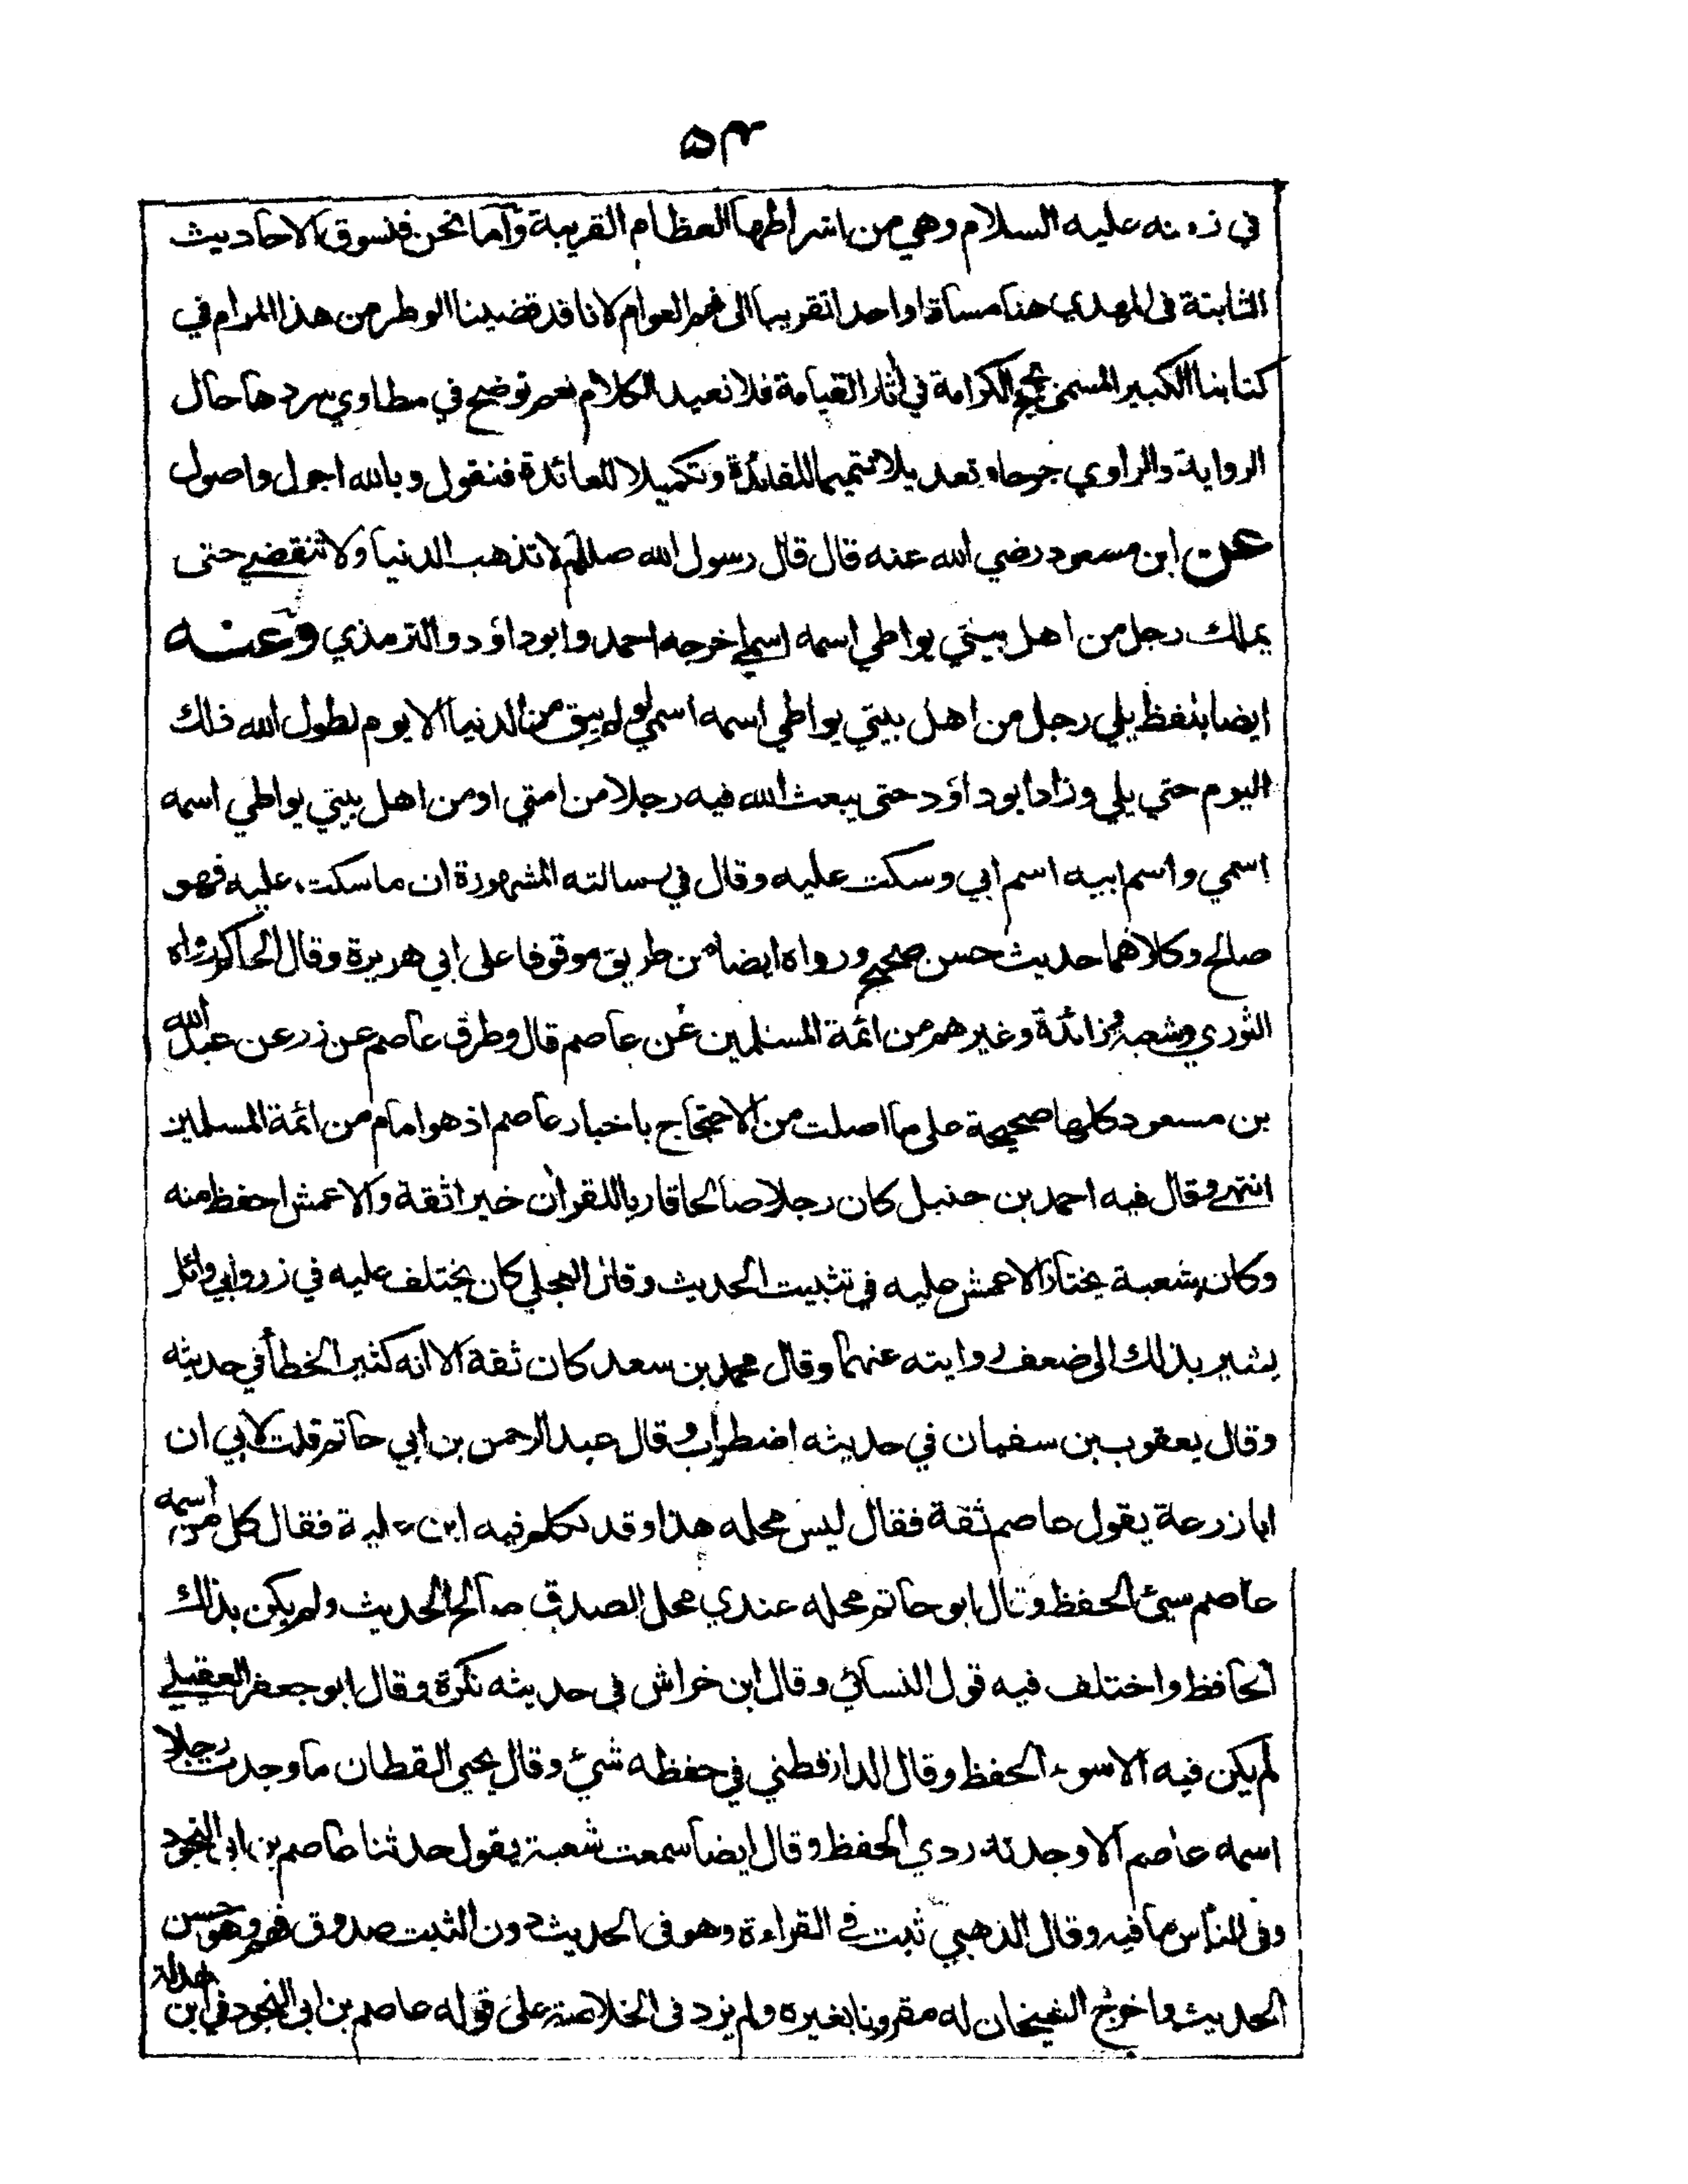 ۵۴
في زمنه عليه السلام وهي من اشراطها العظام القريبة وآما نحن فنسوق الاحاديث
الثابتة فى المهدي هنا مساقا واحدا تقريبا الى فهم العوام لانا قد قضينا الوطر من هذا المرام في
كتابنا الكبير المسمى بحجج الكرامة في اثار القيامة فلا نعيد الكلام نعم توضح في مطاوي سردها حال
الرواية والراوي جرحا وتعديلا تتميما للفائدة وتكميلا للعائدة فنقول وبالله اجول واصول
عن ابن مسعود رضي الله عنه قال قال رسول الله صللم لا تذهب الدنيا ولا تنقضي حتى
يملك رجل من اهل بيتي يواطي اسمه اسمي اخرجه احمد وابو داؤد والترمذي وعنه
ايضا بلفظ يلي رجل من اهل بيتي يواطي اسمه اسمي لو لم يبق من الدنيا الا يوم لطول الله ذلك
اليوم حتي يلي وزاد ابو داؤد حتى يبعث الله فيه رجلا من امتي او من اهل بيتي يواطي اسمه
اسمي واسم ابيه اسم ابي وسكت عليه وقال في رسالته المشهورة ان ما سكت عليه فهو
صالح وكلاهما حديث حسن صحيح ورواه ايضا من طريق موقوفا على ابي هريرة وقال الحاكم رواه
الثوري وشعبة وزائدة وغيرهم من ائمة المسلمين عن عاصم قال وطرق عاصم عن زر عن عبد الله
بن مسعود كلها صحيحة على ما اصلت من الاحتجاج باخبار عاصم اذ هو امام من ائمة المسلمين
انتهى وقال فيه احمد بن حنبل كان رجلا صالحا قاريا للقرأن خيرا ثقة والاعمش احفظ منه
وكان شعبة يختار الاعمش عليه في تثبيت الحديث وقال العجلي كان يختلف عليه في زر وابي وائل
يشير بذلك الى ضعف روايته عنهما وقال محمد بن سعد كان ثقة الا انه كثير الخطأ في حديثه
وقال يعقوب بن سفيان في حديثه اضطراب وقال عبد الرحمن بن ابي حاتم قلت لابي ان
ابا زرعة يقول عاصم ثقة فقال ليس محله هذا وقد تكلم فيه ابن علية فقال كل من اسمه
عاصم سيئ الحفظ وقال ابو حاتم محله عندي محل الصدق صالح الحديث ولم يكن بذلك
الحافظ واختلف فيه قول النسائي وقال ابن خراش في حديثه نكرة وقال ابو جعفر العقيلي
لم يكن فيه الا سوء الحفظ وقال الدارقطني في حفظه شيئ وقال يحيى القطان ما وجدت رجلا
اسمه عاصم الا وجدته ردي الحفظ وقال ايضا سمعت شعبة يقول حدثنا عاصم بن ابي النجود
وفى الناس ما فيه وقال الذهبي ثبت في القراءة وهو فى الحديث دون الثبت صدوق فهم وهو حسن
الحديث واخرج الشيخان له مقرونا بغيره ولم يزد فى الخلاصة على قوله عاصم بن ابى النجود في ابن